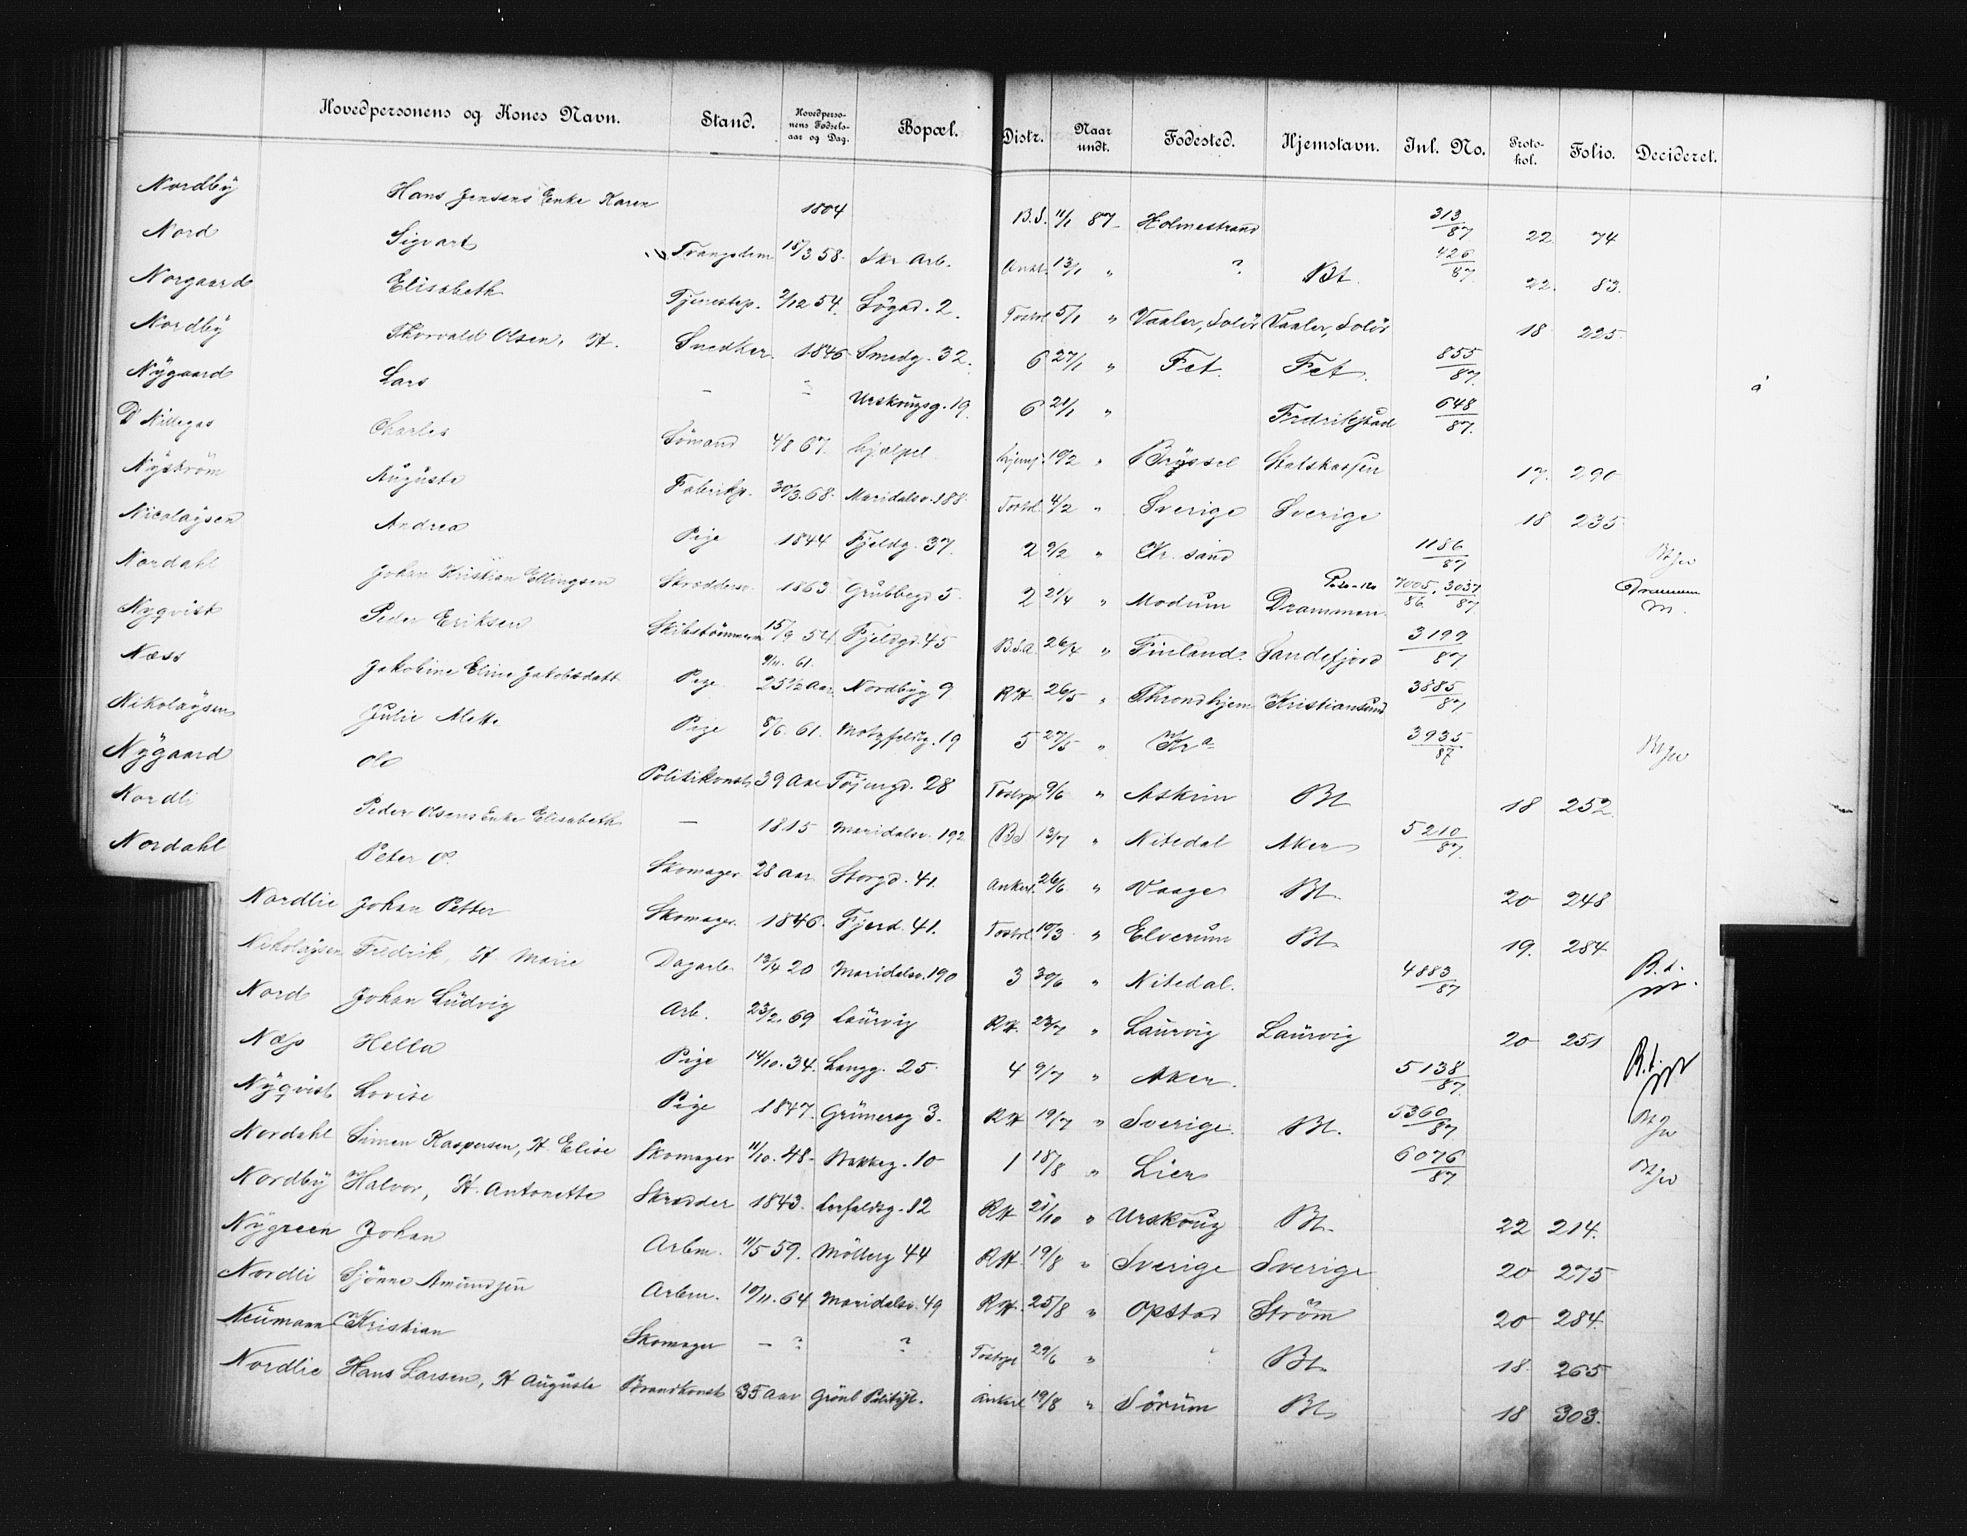 Hovedpersonens og Kones Navn. Stand. Hovedpersonens Fødselsaar og Dag. Bopæl. Distr. Naar undt. Fødested. Hjemstavn. Inl. No. Protokol. Folio. Decideret.
Nordby Hans Jensens Enke Karen 1804 B.S. 11/1 87 Holmestrand 313/87 22 74
Nord Sigvart Tvangslem 18/3 58 Skr Arb. Ankl. 13/1 " ? Bt. 426/87 22 83
Norgaard Elisabeth Tjenestep. 2/12 54. Søgd. 2. Tostrl 5/1 " Vaaler, Solør Vaaler, Solør 18 225
Nordby Thorvald Olsen, H. Snedker 1846 Smedg. 32. 6 27/1 " Fet. Fet. 855/87
Nygaard Lars — " Urskougsg. 19. 6 21/1 " Fredrikstad 648/87.
D'Nillegas Charles Sømand 4/8 67. Hjælpel. 10/2 " Brüssel Statskassen 17. 290
Nyström Augusta Fabrikp. 30/3 68. Maridalsv. 188. Tostrl. 4/2 " Sverige Sverige 18 235
Nicolaysen Andrea Pige 1844 Fjeldg. 37. 2 9/2 " Kr. sand 1186/87
Nordahl Johan Kristian Ellingsen Skræddersv. 1863 Grubbegd 5. 2 21/4 " Modum Drammen 7005/86, 3037/87 Drammen
Nyqvist Peder Eriksen Skibstømmerm 15/9 54 Fjeldgd. 45 B.S.A 26/4 " Finland. Sandefjord 3199/87
Næss Jakobine Eline Jakobsdatt Pige 9/11. 61. 25 1/2 Aar Nordbyg 9 RH 26/5 " Throndhjem Kristiansund 3885/87
Nikolaysen Julie Mette Pige 8/6. 61. Motzfeldtg. 19 5 27/5 " Kra 3935/87
Nygaard Ole Politikonst. 39 Aar Tøiengd. 28 Tostrp 9/6 " Askim Bt 18 252
Nordli Peder Olsens Enke Elisabeth — 1815 Maridalsv. 192 BS 13/7 " Nitedal Aker 5210/87.
Nordahl Peter O. Skomager 28 Aar Storgd. 41. Ankerl. 26/6 " Vaage Bt. 20 248
Nordlie Johan Petter Skomager. 1846. Fjerd. 41. Tostrl 10/3 " Elverum Bt 19. 284
Nikolaysen Fredrik, H. Marie Dagarb. 13/4 20 Maridalsv. 190 3 30/6 " Nitedal. 4883/87 B.t.
Nord Johan Ludvig Arb. 23/2. 69 Laurvig RH. 23/7 " Laurvig Laurvig 20 251
Næss Hella Pige 14/10. 34. Langg. 25. 4 9/7 " Aker. 5138/87. B.t.
Nyqvist Lovise Pige 1847. Grünersg 3. RH 19/7 " Sverige. Bt. 5360/87
Nordahl Simen Kaspersen, H. Elise Skomager 11/10. 48. Bakkeg. 10 1 18/8 " Lier 6076/87.
Nordby Halvor, H. Antonette Skrædder 1843. Lerfaldsg. 12 RH 21/10 " Urskoug Bt. 22 214.
Nygreen Johan Arbm. 11/5 59. Möllerg 44 RH. 19/8 " Sverige Sverige 20 275
Nordli Sjønne Amundsen Arbm. 10/11. 64 Maridalsv. 49 RH. 25/8 " Opstad Strøm 20 284.
Neumann Kristian Skomager — ? ? Tostrpl 29/6 " Bt. 18. 265
Nordlie Hans Larsen, H Auguste Brandkonst 35 Aar Grönl Politist. Ankerl 19/8 " Sörum Bt. 18 303.